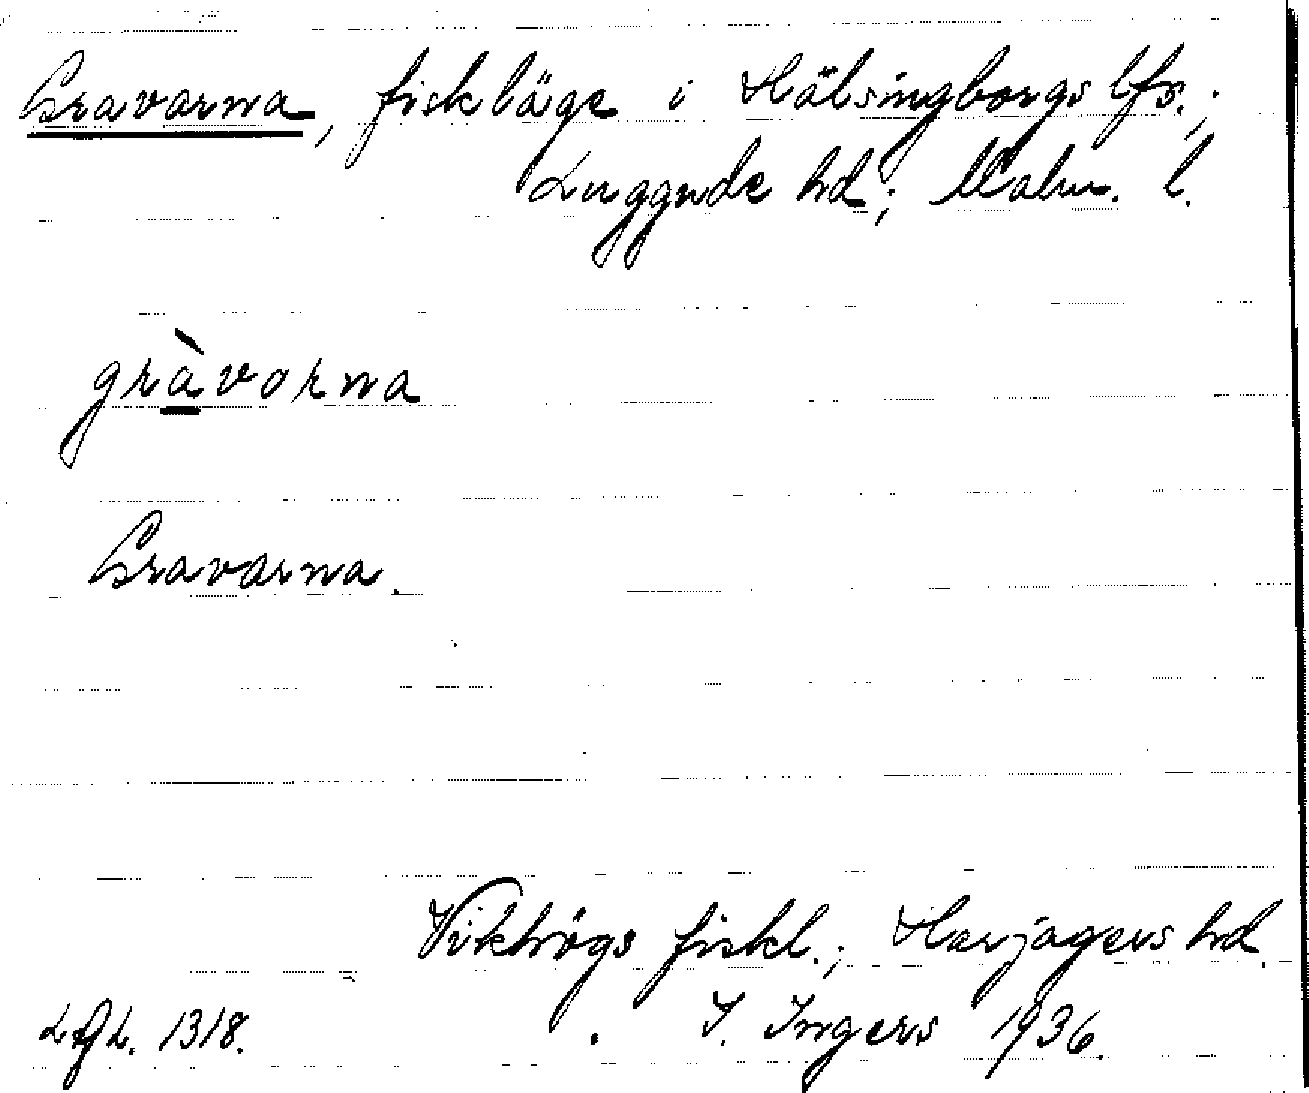 Gravarna, fiskläge i Hälsingborgs lfs.;
Luggude hd; Malm. l.
gràvorna
Gravarna.
Vikhögs fiskl.; Harjagers hd.
I. Ingers 1936.
1318.